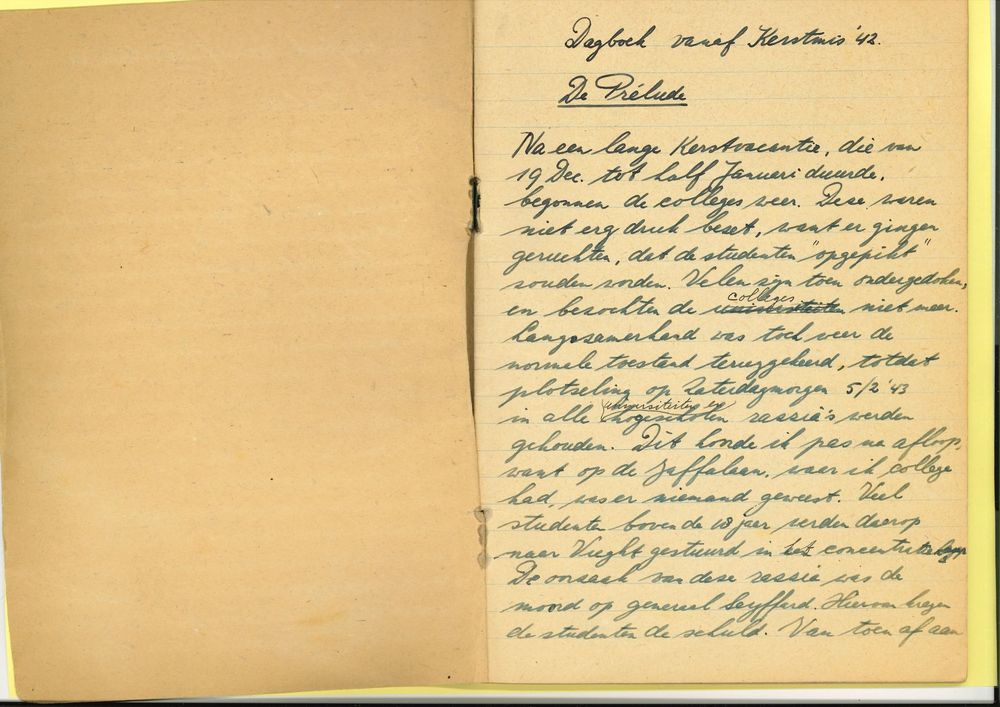 Dagboek vanaf Kerstmis '42.
De Prélude
Na een lange Kerstvacantie, die van
19 Dec. tot half Januari duurde,
begonnen de colleges weer. Deze waren
niet erg druk bezet, want er gingen
geruchten, dat de studenten "opgepikt"
zouden worden. Velen zijn toen ondergedoken,
en bezochten de colleges niet meer.
Langzamerhand was toch weer de
normale toestand teruggekeerd, totdat
plotseling op Zaterdagmorgen 5/2 '43
in alle universiteiten en hogescholen razzia's werden
gehouden. Dit hoorde ik pas na afloop,
want op de Jaffalaan, waar ik college
had, was er niemand geweest. Veel
studenten boven de 18 jaar werden daarop
naar Vught gestuurd in het concentratie kamp
De oorzaak van deze razzia was de
moord op generaal Seyffard. Hiervan kregen
de studenten de schuld. Van toen af aan